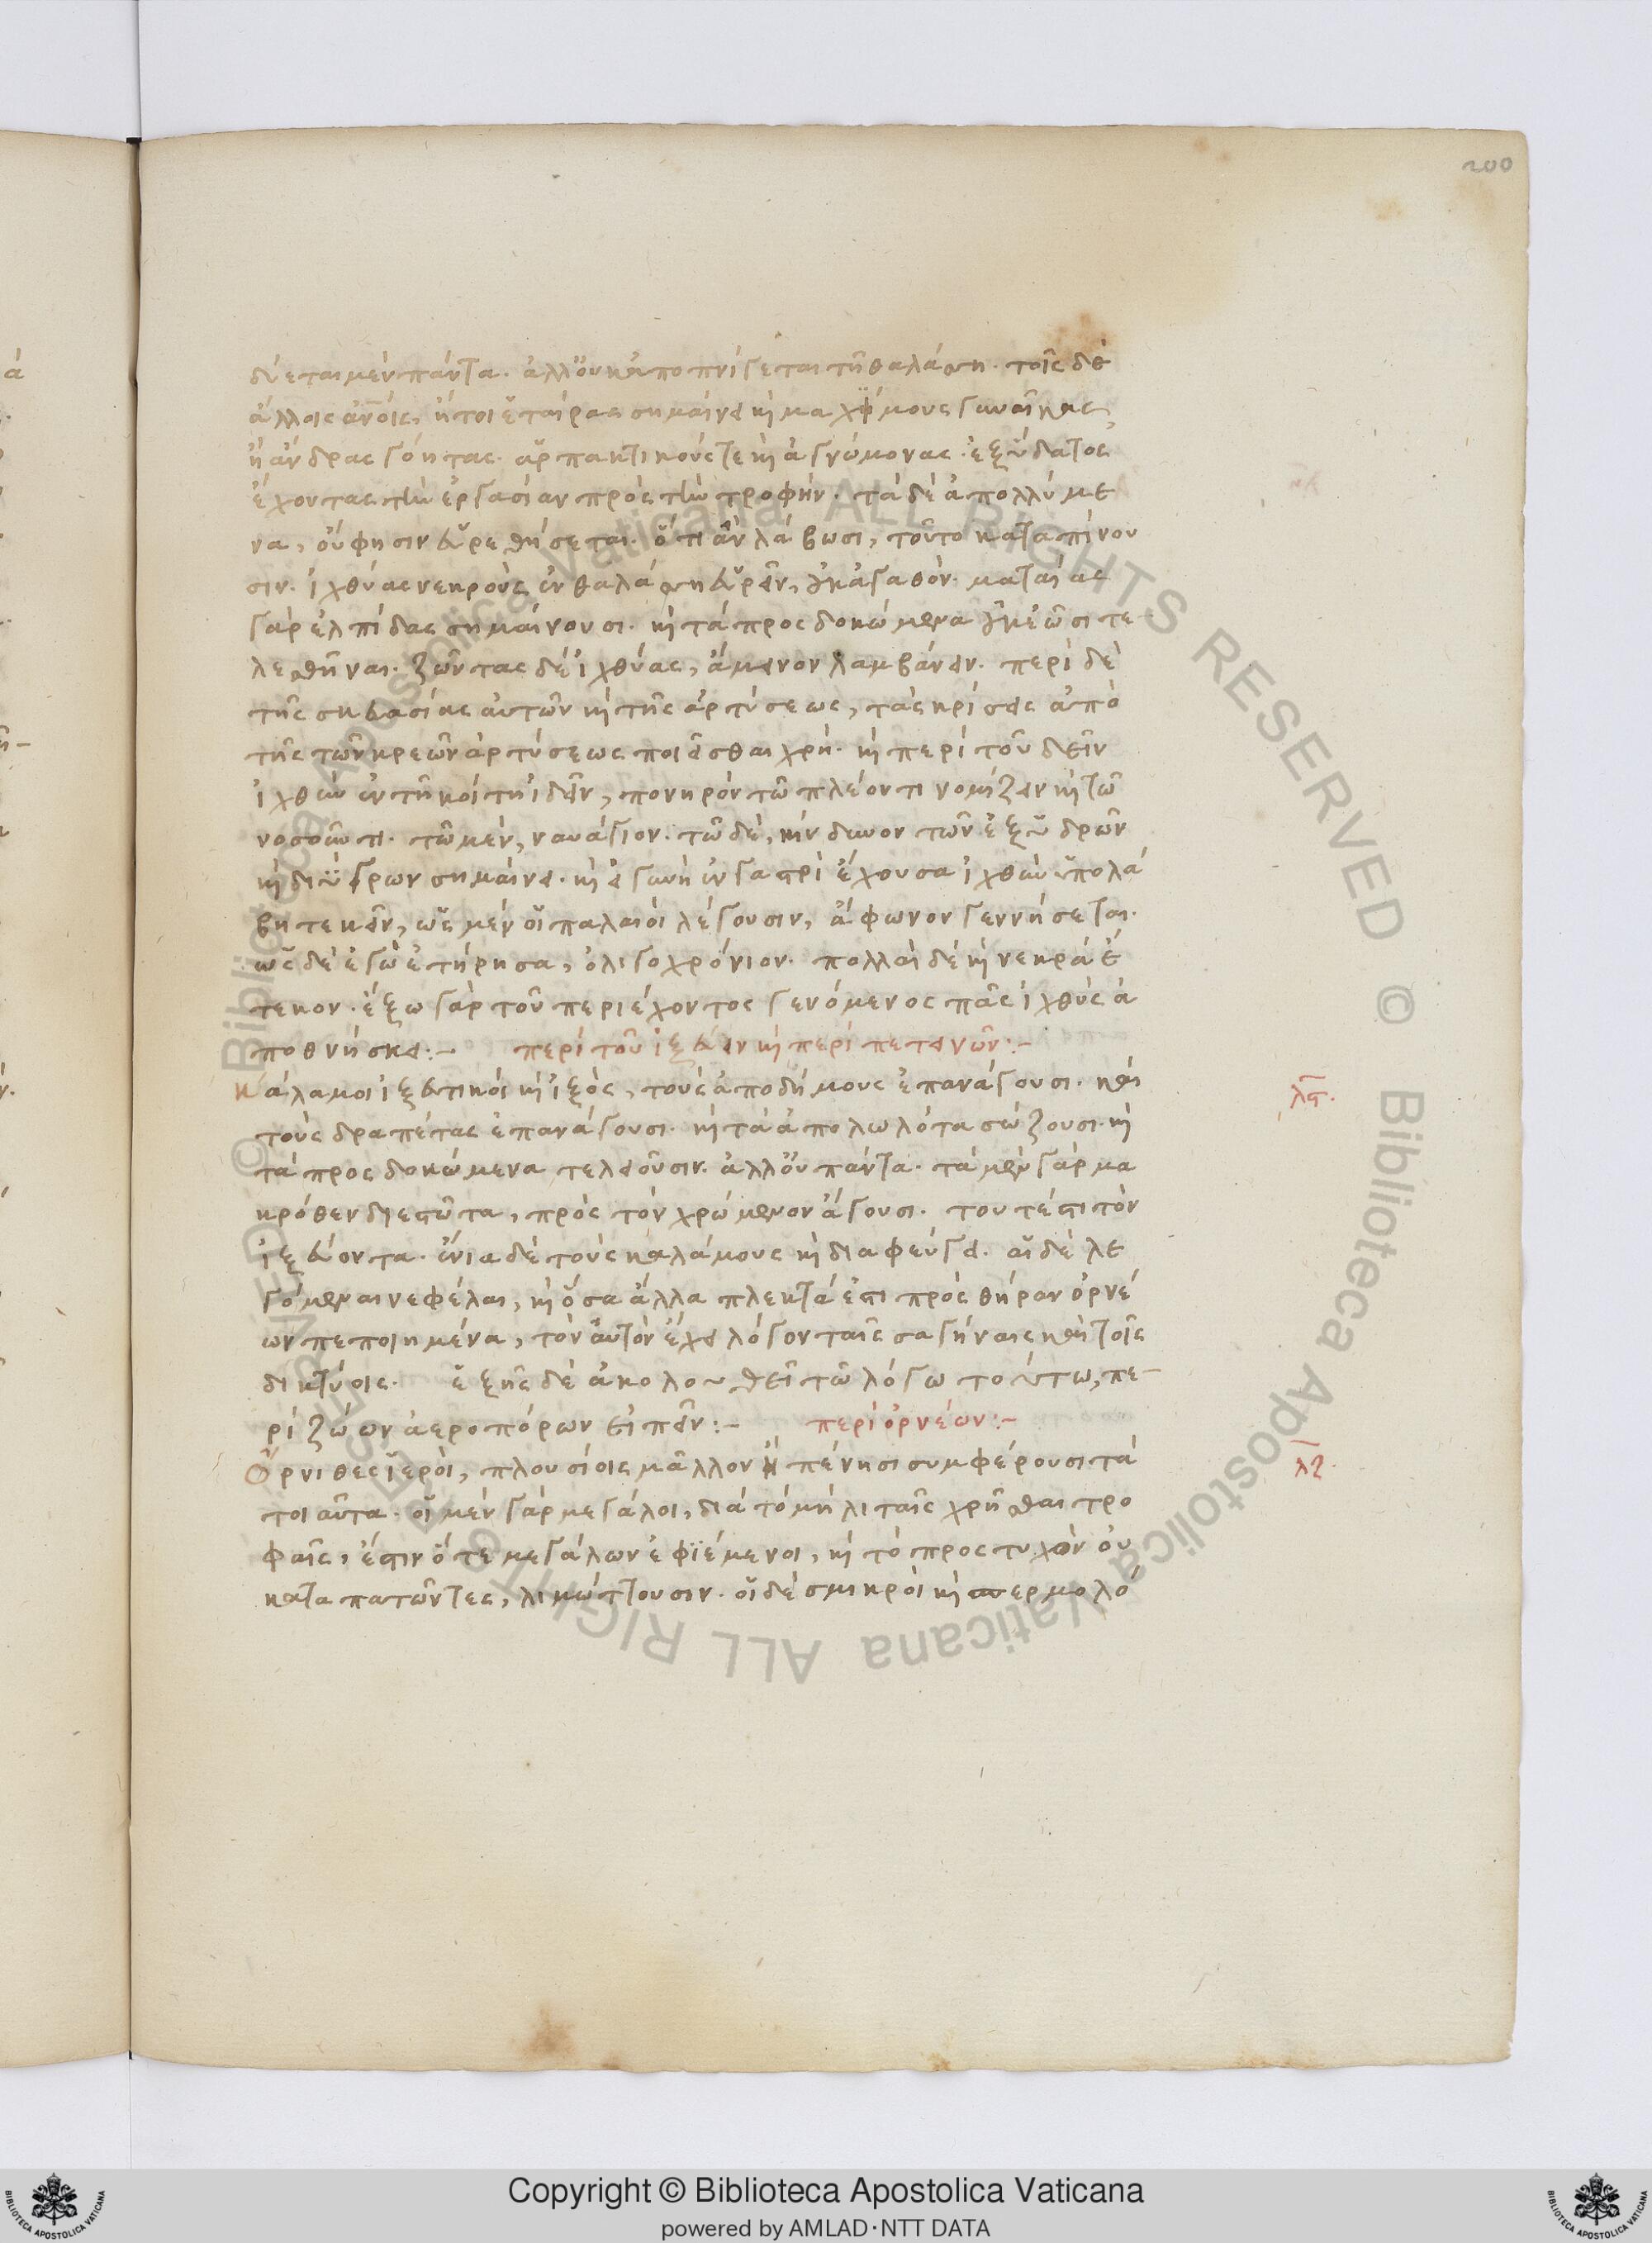 200
δύεται μὲν πάντα. ἀλλ' οὐκ ἀποπνίγεται τῆ θαλάσση. τοῖς δὲ
ἄλλοις ἀνοις, ἤτοι ἑταίρας σημαίνει κὶ μαχίμους γυναῖκας,
ἢ ἄνδρας γόητας. ἁρπακτικούς τε κὶ ἀγνώμονας. ἐξ ὕδατος
ἔχοντας τὴν ἐργασίαν πρὸς τὴν τροφήν. τὰ δὲ ἀπολλύμε
να, οὔ φησιν εὑρεθήσεται. ὅτι ἂν λάβωσι, τοῦτο καταπίνου
σιν. ἰχθύας νεκροὺς ἐν θαλάσση εὑρεῖν, οὐκ ἀγαθόν. ματαίας
γὰρ ἐλπίδας σημαίνουσι. κὶ τὰ προσδοκώμενα οὐκ ἐῶσι τε
λεσθῆναι. ζῶντας δὲ ἰχθύας, ἄμεινον λαμβάνειν. περὶ δὲ
τῆς σκευασίας αὐτῶν κὶ τῆς ἀρτύσεως, τὰς κρίσεις ἀπὸ
τῆς τῶν κρεῶν ἀρτύσεως ποιεῖσθαι χρή. κὶ περὶ τοῦ δεῖν
ἰχθὺν ἐν τῆ κοίτη ἰδεῖν, πονηρὸν τῶ πλέοντι νομίζειν κὶ τῶ
νοσοῦντι. τῶ μὲν, ναυάγιον. τῶ δὲ, κίνδυνον τῶν ἐξ ὑδρῶν
κὶ διύγρων σημαίνει. κὶ εἰ γυνὴ ἐν γαστρὶ ἔχουσα ἰχθὺν ὑπολά
βη τεκεῖν, ὡς μὲν οἱ παλαιοὶ λέγουσιν, ἄφωνον γεννήσεται.
ὡς δὲ ἐγὼ ἐτήρησα, ὀλιγοχρόνιον. πολλαὶ δὲ κὶ νεκρὰ ἔ
τεκον. ἔξω γὰρ τοῦ περιέχοντος γενόμενος πᾶς ἰχθὺς ἀ
ποθνήσκει:- περὶ τοῦ ἰξεύειν κὶ περὶ πετεινῶν:-
Κάλαμοι ἰξευτικοὶ κὶ ἰξὸς, τοὺς ἀποδήμους ἐπανάγουσι. καὶ
λς.
τοὺς δραπέτας ἐπανάγουσι. κὶ τὰ ἀπολωλότα σώζουσι. κὶ
τὰ προσδοκώμενα τελειοῦσιν. ἀλλ' οὐ πάντα. τὰ μὲν γὰρ μα
κρόθεν διεστῶτα, πρὸς τὸν χρώμενον ἄγουσι. τουτέστι τὸν
ἰξεύοντα. ἔνια δὲ τοὺς καλάμους κὶ διαφεύγει. αἱ δὲ λε
γόμεναι νεφέλαι, κὶ ὅσα ἄλλα πλεκτά ἐστι πρὸς θήραν ὀρνέ
ων πεποιημένα, τὸν αὐτὸν ἔχει λόγον ταῖς σαγήναις καὶ τοῖς
δικτύοις. ἑξῆς δὲ ἀκολουθεῖ τῶ λόγω τούτω, πε-
ρὶ ζώων ἀεροπόρων εἰπεῖν:- περὶ ὀρνέων:-
Ὄρνιθες ἱεροὶ, πλουσίοις μᾶλλον ἢ πένησι συμφέρουσι τὰ
λζ.
τοιαῦτα. οἱ μὲν γὰρ μεγάλοι, διὰ τὸ μὴ λιταῖς χρῆσθαι τρο
φαῖς, ἔστιν ὅτε μεγάλων ἐφϊέμενοι, κὶ τὸ προστυχὸν οὐ
καταπατῶντες, λιμώττουσιν. οἱ δὲ σμικροὶ κὶ σπερμολό
Copyright © Biblioteca Apostolica Vaticana
powered by AMLAD·NTT DATA